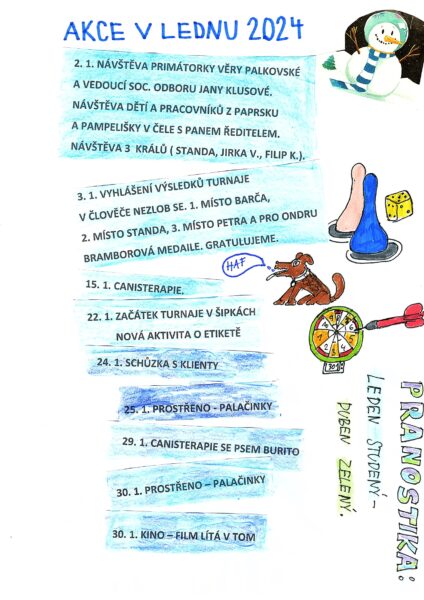 AKCE V LEDNU 2024
2. 1. NÁVŠTĚVA PRIMÁTORKY VĚRY PALKOVSKÉ
A VEDOUCÍ SOC. ODBORU JANY KLUSOVÉ.
NÁVŠTĚVA DĚTÍ A PRACOVNÍKŮ Z PAPRSKU
A PAMPELIŠKY V ČELE S PANEM ŘEDITELEM.
NÁVŠTĚVA 3 KRÁLŮ ( STANDA, JIRKA V., FILIP K.).
3. 1. VYHLÁŠENÍ VÝSLEDKŮ TURNAJE
V ČLOVĚČE NEZLOB SE. 1. MÍSTO BARČA,
2. MÍSTO STANDA, 3. MÍSTO PETRA A PRO ONDRU
BRAMBOROVÁ MEDAILE. GRATULUJEME.
HAF
15. 1. CANISTERAPIE.
22. 1. ZAČÁTEK TURNAJE V ŠIPKÁCH
NOVÁ AKTIVITA O ETIKETĚ
24. 1. SCHŮZKA S KLIENTY
25. 1. PROSTŘENO - PALAČINKY
29. 1. CANISTERAPIE SE PSEM BURITO
30. 1. PROSTŘENO – PALAČINKY
30. 1. KINO – FILM LÍTÁ V TOM
PRANOSTIKA:
LEDEN STUDENÝ –
DUBEN ZELENÝ.